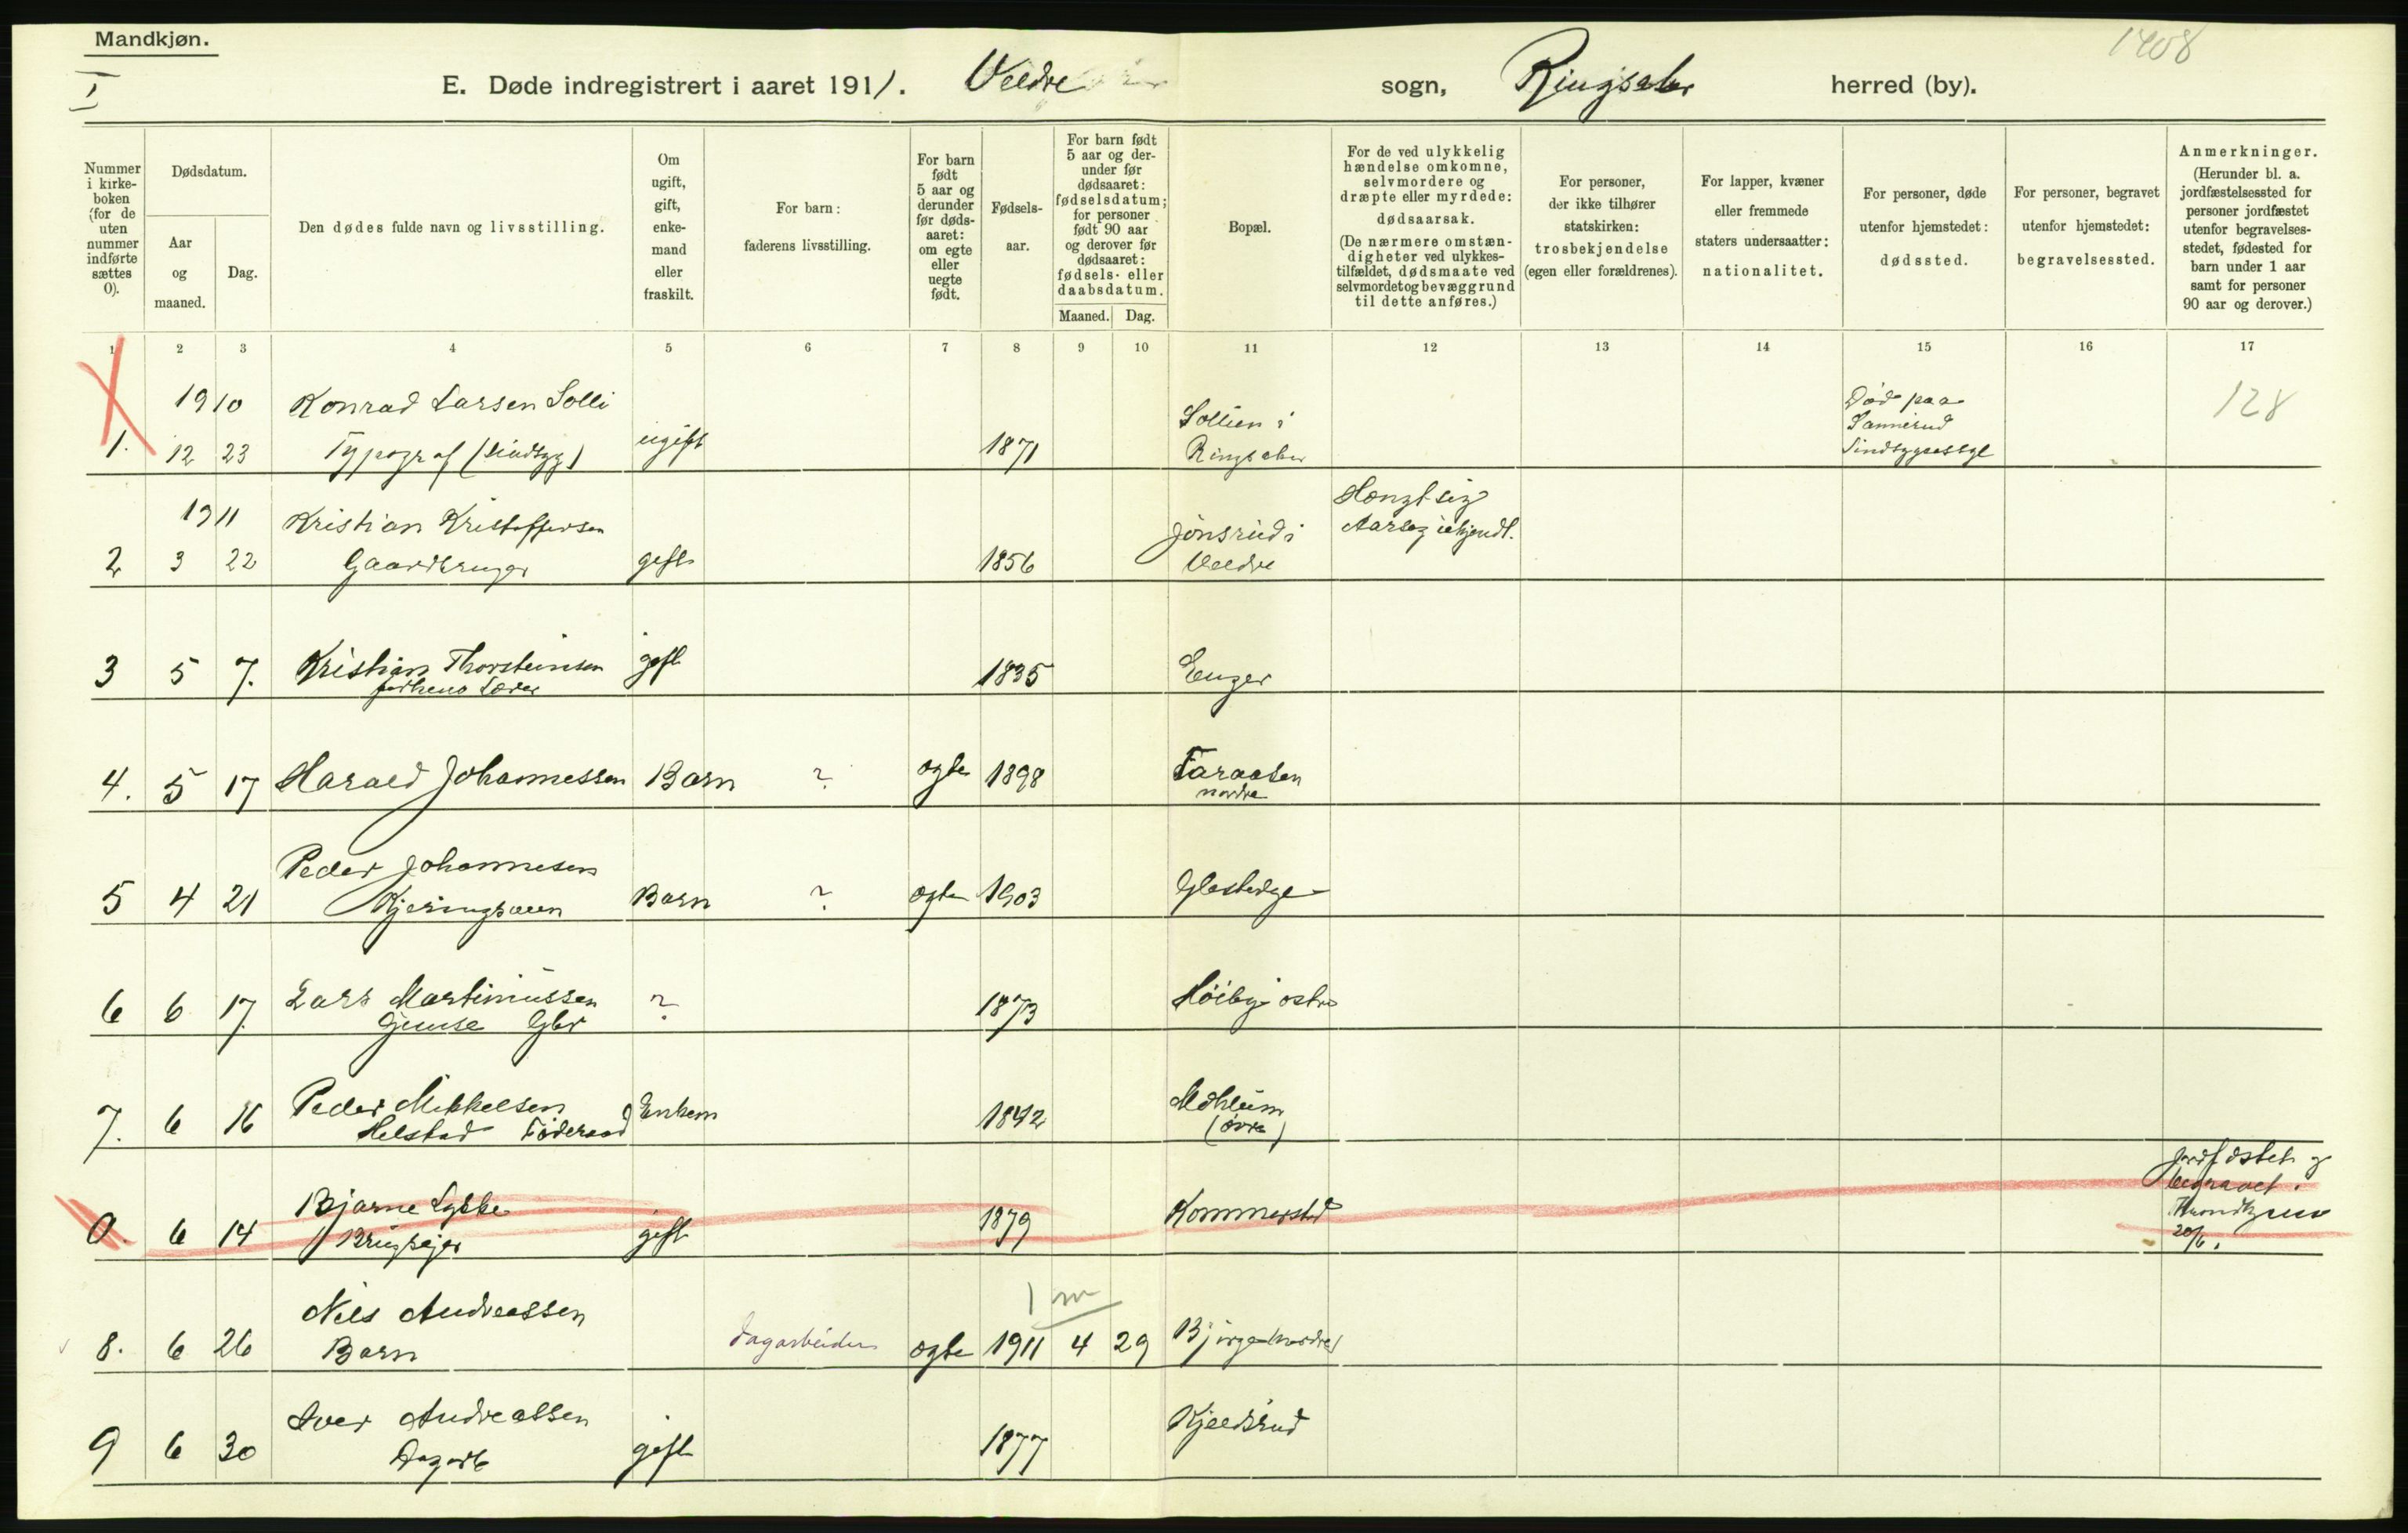 Mandkjøn.
I
1408
E. Døde indregistrert i aaret 1911. Veldre sogn, Ringsaker herred (by).
Nummer i kirkeboken (for de uten nummer indførte sættes 0).
Dødsdatum.
Aar og maaned.
Dag.
Den dødes fulde navn og livsstilling.
Om ugift, gift, enkemand eller fraskilt.
For barn: faderens livsstilling.
For barn født 5 aar og derunder før dødsaaret: om egte eller uegte født.
Fødselsaar.
For barn født 5 aar og derunder før dødsaaret: fødselsdatum; for personer født 90 aar og derover før dødsaaret: fødsels- eller daabsdatum.
Maaned. Dag.
Bopæl.
For de ved ulykkelig hændelse omkomne, selvmordere og dræpte eller myrdede: dødsaarsak. (De nærmere omstændigheter ved ulykkestilfældet, dødsmaate ved selvmordet og bevæggrund til dette anføres.)
For personer, der ikke tilhører statskirken: trosbekjendelse (egen eller forældrenes).
For lapper, kvæner eller fremmede staters undersaatter: nationalitet.
For personer, døde utenfor hjemstedet: dødssted.
For personer, begravet utenfor hjemstedet: begravelsessted.
Anmerkninger. (Herunder bl. a. jordfæstelsessted for personer jordfæstet utenfor begravelsesstedet, fødested for barn under 1 aar samt for personer 90 aar og derover.)
1 2 3 4 5 6 7 8 9 10 11 12 13 14 15 16 17
1910 Konrad Larsen Solli Sollien i Død paa 128
Sannerud
1. 12 23 Typograf (Sindsyg) ugift 1871 Ringsaker Sindsygeasyl
1911 Kristian Kristoffersen Jønsrud i Hængt sig Aarsag ubekjendt.
2 3 22 Gaardbruger gift 1856 Veldre
3 5 7. Kristian Thorsteinsen gift 1835 Enger
forhens Lærer
4. 5 17 Harald Johannessen Barn ? ægte 1898 Faraasen
nordre
Peder Johannesen
5 4 21 Barn ? ægte 1903
6 6 17 Lars Martinussen ? 1873 Høiby østre
Gbr
7. 6 16 Peder Mikkelsen Enkem 1842 Mæhlum
Helstad Føderaad (øvre)
Bjarne Lykke Jordfæstet og
0. 6 14 Brugsejer gift 1879 Kommerstad begravet i
Trondhjem
20/6.
Nils Andreassen 1 m
8. 6 26 Barn Dagarbeider ægte 1911 4 29 Bjørge (nordre)
Iver Andreassen Kjeldsrud
9 6 30 Dagarb gift 1877